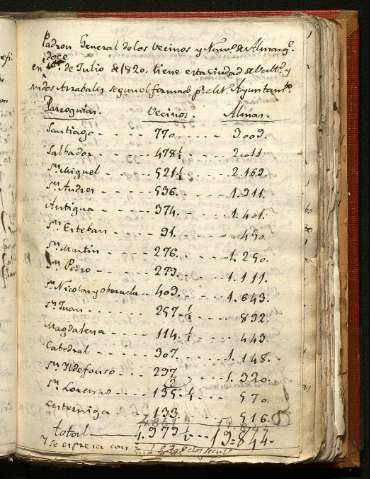 Padron General de los Vecinos y Num.º de Almas q.e
en 1º. de Julio de 1820. tiene esta Ciudad de Vall.d y
sus dos Arrabales segun el formado p.r el Yt. Ayuntam.to
Parroquias. Vecinos. Almas.
Santiago 770. 3.003.
Salbador 478½ 2.011
S.n Miguel 521½ 2.162.
S.n Andres 536. 1.911.
Antigua 374. 1.401.
S.n Esteban 91. 450.
S.n Martin 276. 1.250.
S.n Pedro 273. 1.111.
S.n Nicolas y oberuela 403. 1.643.
S.n Juan 257.½ 892.
Magdalena 114.½ 443.
Catedral 307. 1.148.
S.n Ildefonso 297. 1.320.
S.n Lorenzo 135.½ 570.
Cisterniga 133. 516.
total 4.973½ 19.844.
y se expresa con